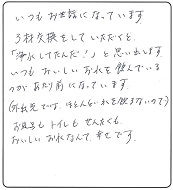 いつもお世話になっています
3材交換をしていただくと、
「浄水してたんだ!」と思い出します。
いつもおいしいお水を飲んでいる
のがあたり前になっています。
(外出先では、ほとんどお水を飲まないので)
お風呂もトイレもせんたくも
おいしいお水なんて、幸せです。